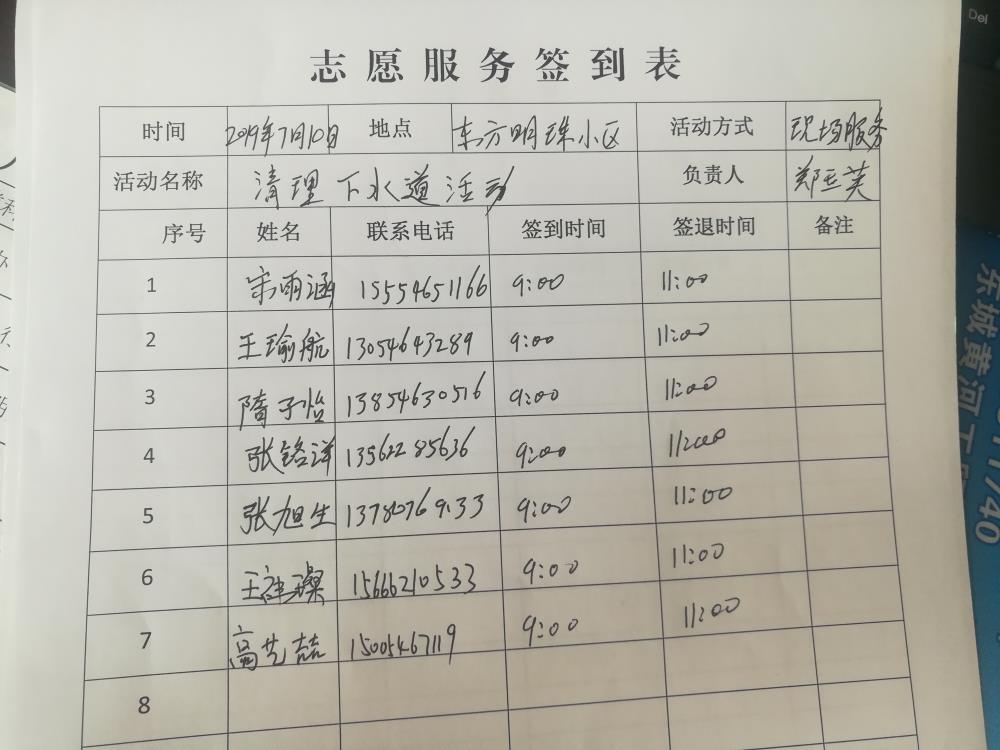 Del
志愿服务签到表
时间 2019年7月10日 地点 东方明珠小区 活动方式 现场服务
活动名称 清理下水道活动 负责人 郑亚芙
序号 姓名 联系电话 签到时间 签退时间 备注
1 宋雨涵 15554651166 9:00 11:00
2 王瑜航 13054643289 9:00 11:00
3 隋子怡 13854630516 9:00 11:00
4 张铭洋 13562285636 9:00 11:00
5 张旭生 13780769133 9:00 11:00
6 王祥璪 15666210533 9:00 11:00
7 高艺喆 15005467119 9:00 11:00
8
东城黄河工
17740